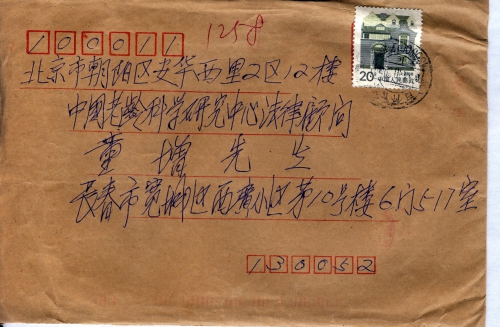 100011
1258
北京市朝阳区安华西里2区12楼
中国老龄科学研究中心法律顾问
童增先生
长春市宽城区西广小区第10号楼6门517室
130052
20